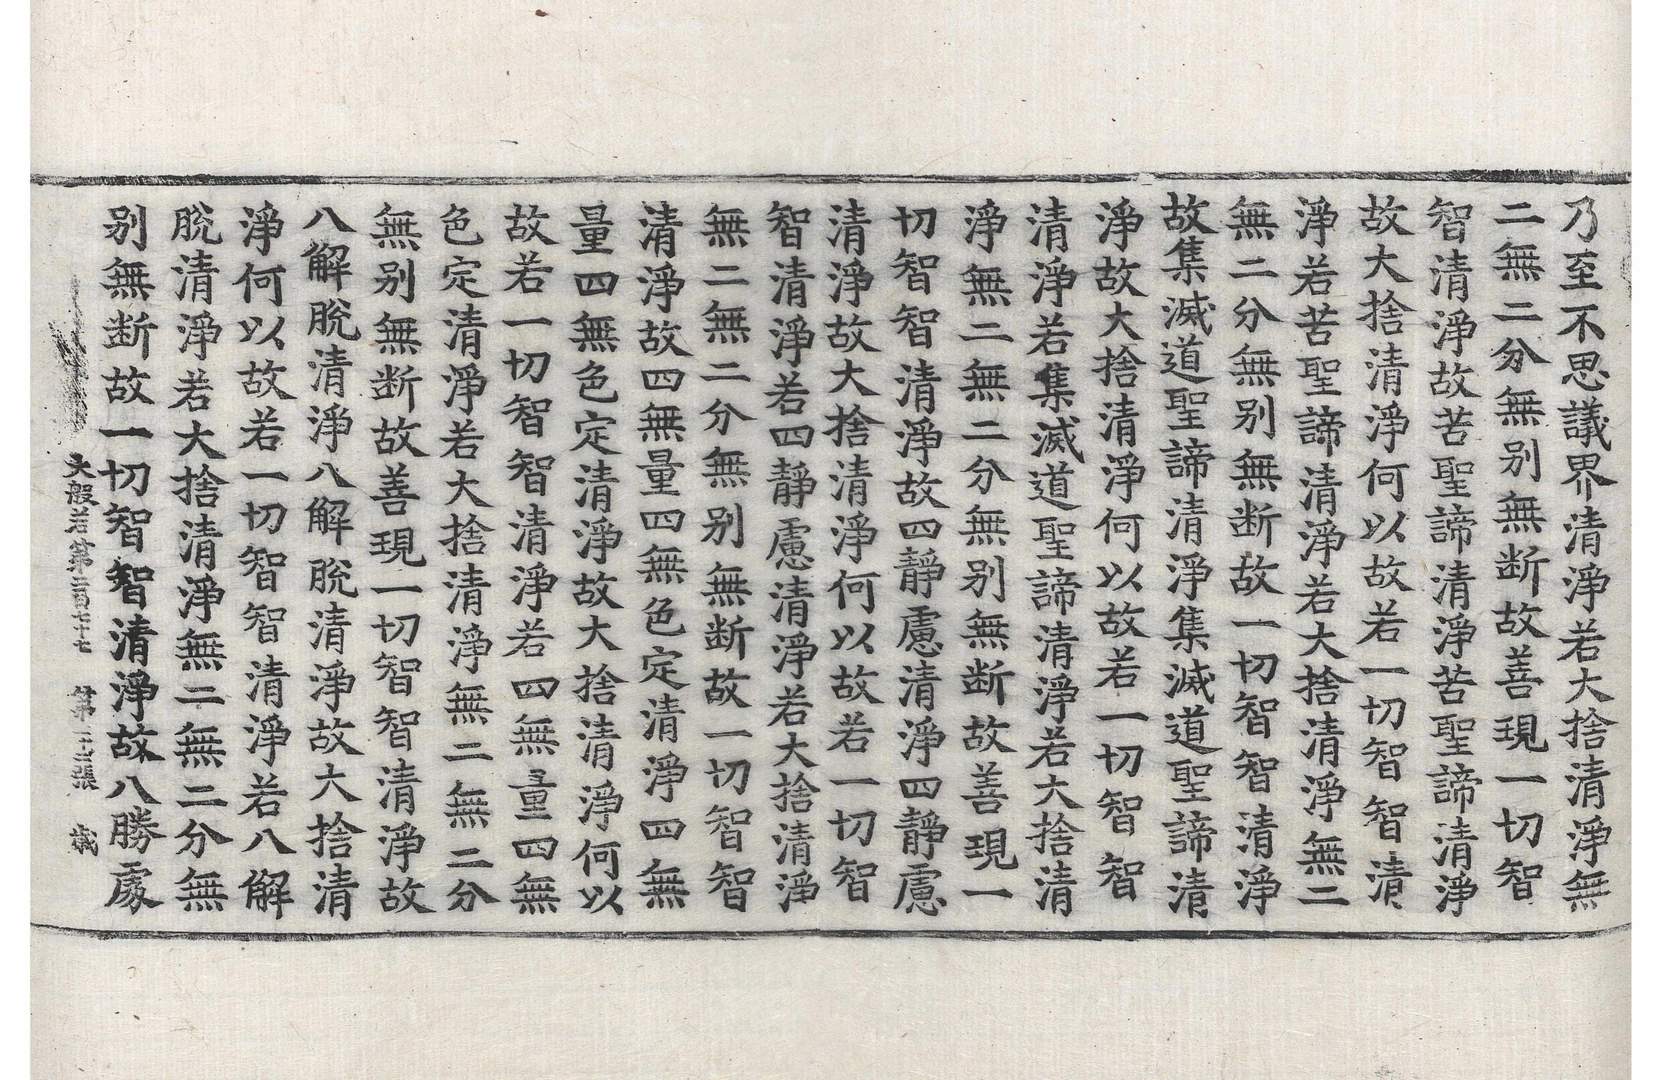 乃至不思議界清淨若大捨清淨無
二無二分無別無断故善現一切智
智清淨故苦聖諦清淨苦聖諦清淨
故大捨清淨何以故若一切智智清
淨若苦聖諦清淨若大捨清淨無二
無二分無別無断故一切智智清淨
故集滅道聖諦清淨集滅道聖諦清
淨故大捨清淨何以故若一切智智
清淨若集滅道聖諦清淨若大捨清
淨無二無二分無別無断故善現一
切智智清淨故四靜慮清淨四靜慮
清淨故大捨清淨何以故若一切智
智清淨若四靜慮清淨若大捨清淨
無二無二分無別無断故一切智智
清淨故四無量四無色定清淨四無
量四無色定清淨故大捨清淨何以
故若一切智智清淨若四無量四無
色定清淨若大捨清淨無二無二分
無別無断故善現一切智智清淨故
八解脫清淨八解脫清淨故大捨清
淨何以故若一切智智清淨若八解
脫清淨若大捨清淨無二無二分無
別無断故一切智智清淨故八勝處
大般若第二百七十七 第 張